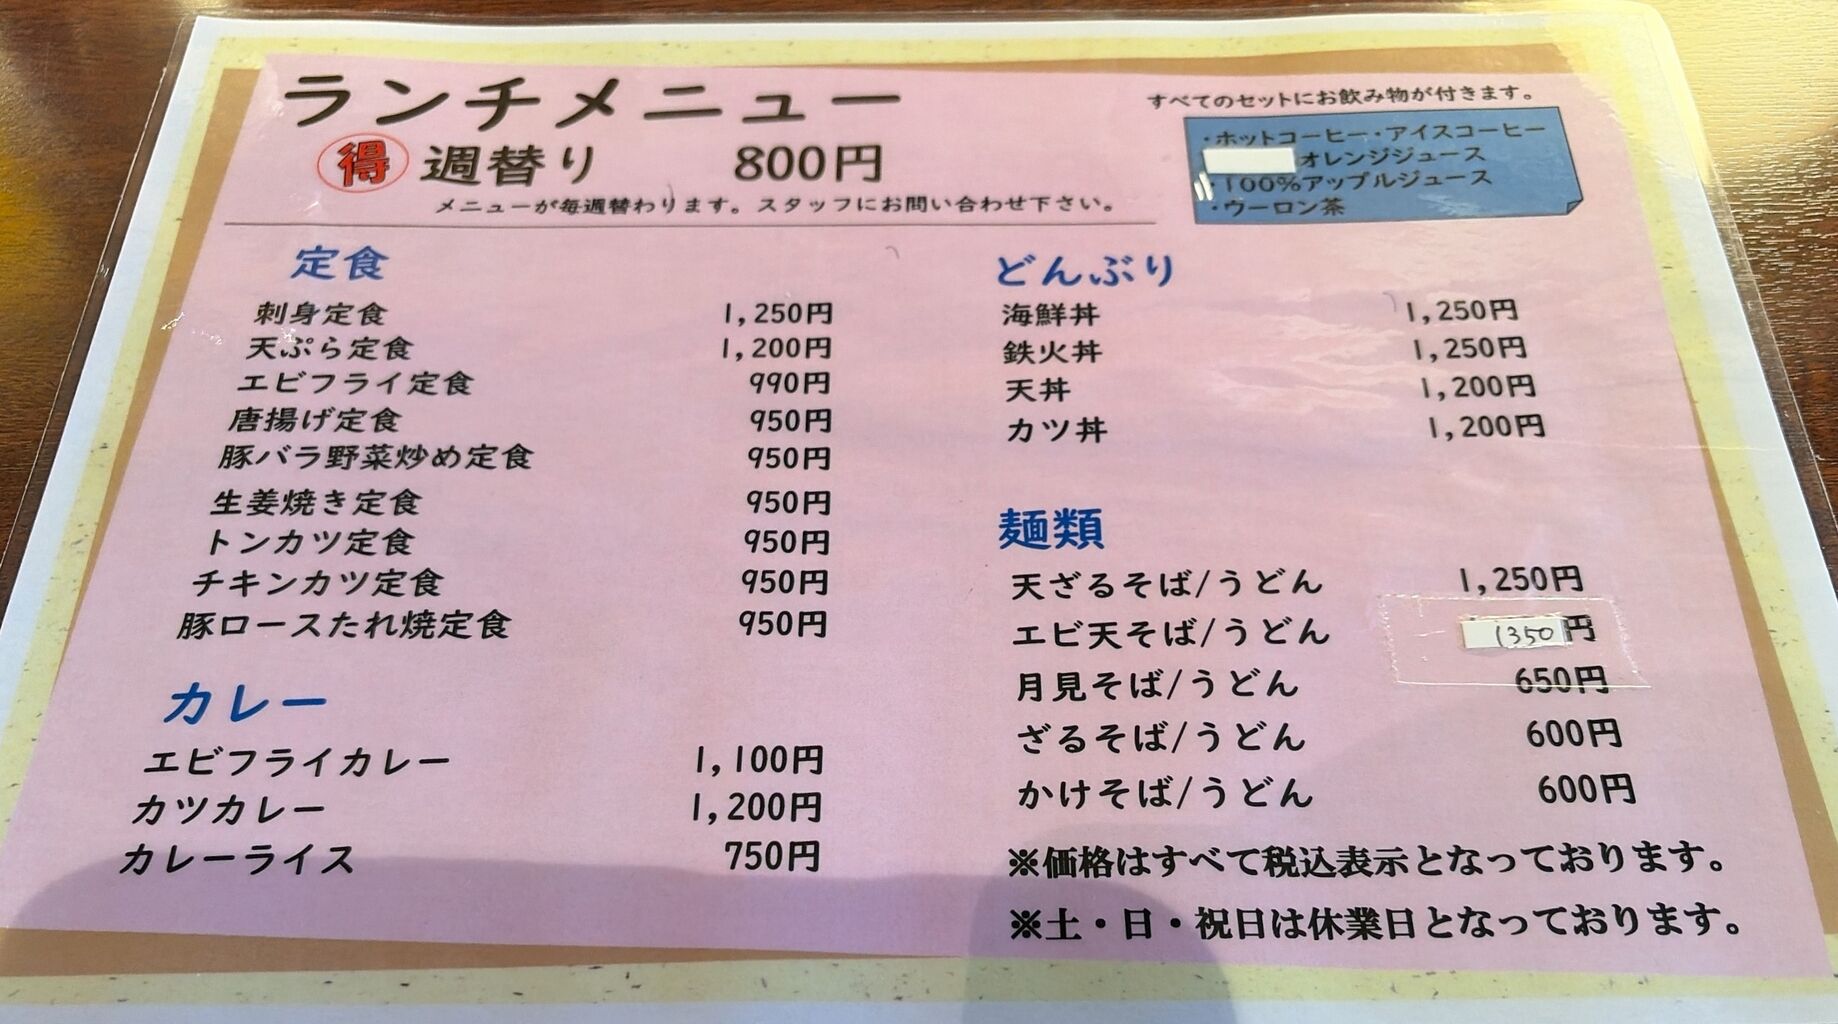 ランチメニュー
得 週替り 800円
メニューが毎週替わります。スタッフにお問い合わせ下さい。
すべてのセットにお飲み物が付きます。
・ホットコーヒー・アイスコーヒー
オレンジジュース
・100%アップルジュース
・ウーロン茶
定食
刺身定食 1,250円
天ぷら定食 1,200円
エビフライ定食 990円
唐揚げ定食 950円
豚バラ野菜炒め定食 950円
生姜焼き定食 950円
トンカツ定食 950円
チキンカツ定食 950円
豚ロースたれ焼定食 950円
カレー
エビフライカレー 1,100円
カツカレー 1,200円
カレーライス 750円
どんぶり
海鮮丼 1,250円
鉄火丼 1,250円
天丼 1,200円
カツ丼 1,200円
麺類
天ざるそば/うどん 1,250円
エビ天そば/うどん 1350円
月見そば/うどん 650円
ざるそば/うどん 600円
かけそば/うどん 600円
※価格はすべて税込表示となっております。
※土・日・祝日は休業日となっております。